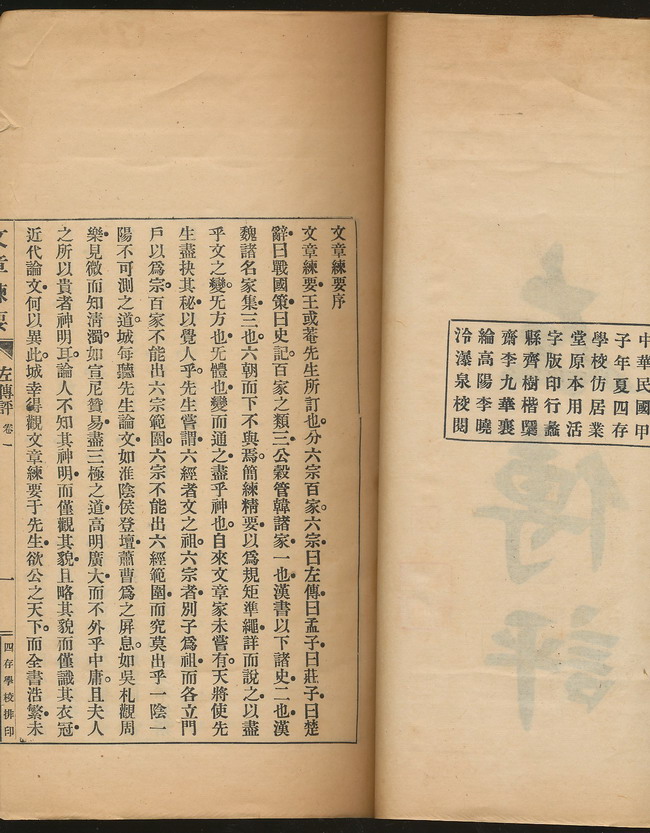 中華民國甲
子年夏四存
學校仿居業
堂原本用活
字版印行蠡
縣齊樹楷隰
齋李九華襄
綸高陽李曉
冷瀑泉校閱
文章練要序
文章練要王或菴先生所訂也分六宗百家六宗曰左傳曰孟子曰莊子曰楚
辭曰戰國策曰史記百家之類三公穀管韓諸家一也漢書以下諸史二也漢
魏諸名家集三也六朝而下不與焉簡練精要以爲規矩準繩詳而說之以盡
乎文之變旡方也旡體也變而通之盡乎神也自來文章家未嘗有天將使先
生盡抉其秘以覺人乎先生嘗謂六經者文之祖六宗者別子爲祖而各立門
戶以爲宗百家不能出六宗範圍六宗不能出六經範圍而究莫出乎一陰一
陽不可測之道城每聽先生論文如淮陰侯登壇蕭曹爲之屏息如吳札觀周
樂見微而知淸濁如宣尼贊易盡三極之道高明廣大而不外乎中庸且夫人
之所以貴者神明耳論人不知其神明而僅觀其貌且略其貌而僅識其衣冠
近代論文何以異此城幸得觀文章練要于先生欲公之天下而全書浩繁未
文章練要 左傳評 卷一 一 四存學校排印
左傳評